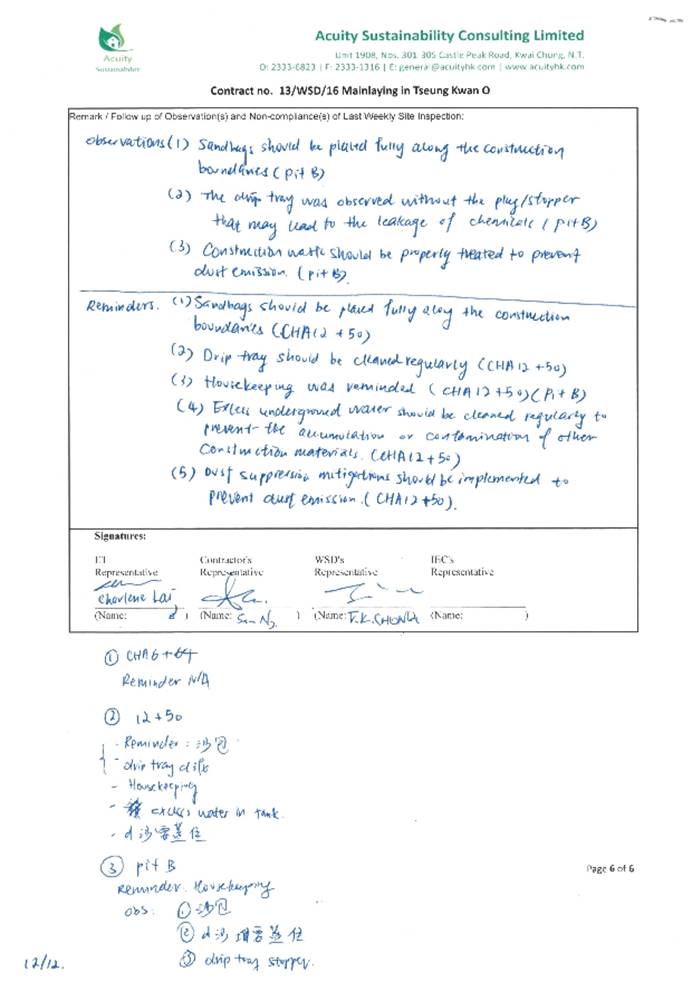 Acuity Sustainability Consulting Limited
Unit 1908, Nos. 301-305 Castle Peak Road, Kwai Chung, N.T.
O: 2333-6823 | F: 2333-1316 | E: general@acuityhk.com | www.acuityhk.com
Acuity
Sustainability
Contract no. 13/WSD/16 Mainlaying in Tseung Kwan O
Remark / Follow up of Observation(s) and Non-compliance(s) of Last Weekly Site Inspection:
Observations (1) Sandbags should be placed fully along the construction
boundaries (pit B)
(2) The drip tray was observed without the plug/stopper
that may lead to the leakage of chemicals (pit B)
(3) Construction waste should be properly treated to prevent
dust emission. (pit B).
Reminders. (1) Sandbags should be placed fully along the construction
boundaries (CHA12+50)
(2) Drip tray should be cleaned regularly (CHA12+50)
(3) Housekeeping was reminded (CHA12+50) (Pit B)
(4) Excess underground water should be cleaned regularly to
prevent the accumulation or contamination of other
construction materials. (CHA12+50)
(5) Dust suppression mitigations should be implemented to
prevent dust emission. (CHA12+50).
Signatures:
ET Contractor's WSD's IEC's
Representative Representative Representative Representative
Charlene Lai
(Name: ) (Name: Sun Ng ) (Name: T.K. CHONG (Name: )
① CHA6+64
Reminder N/A
② 12+50
- Reminder : 沙包
- drip tray
- Housekeeping
- excess water in tank.
- d沙要蓋住
③ pit B
Reminder. Housekeeping
Obs: ① 沙包
② d沙 要蓋住
③ drip tray stopper.
Page 6 of 6
12/12.